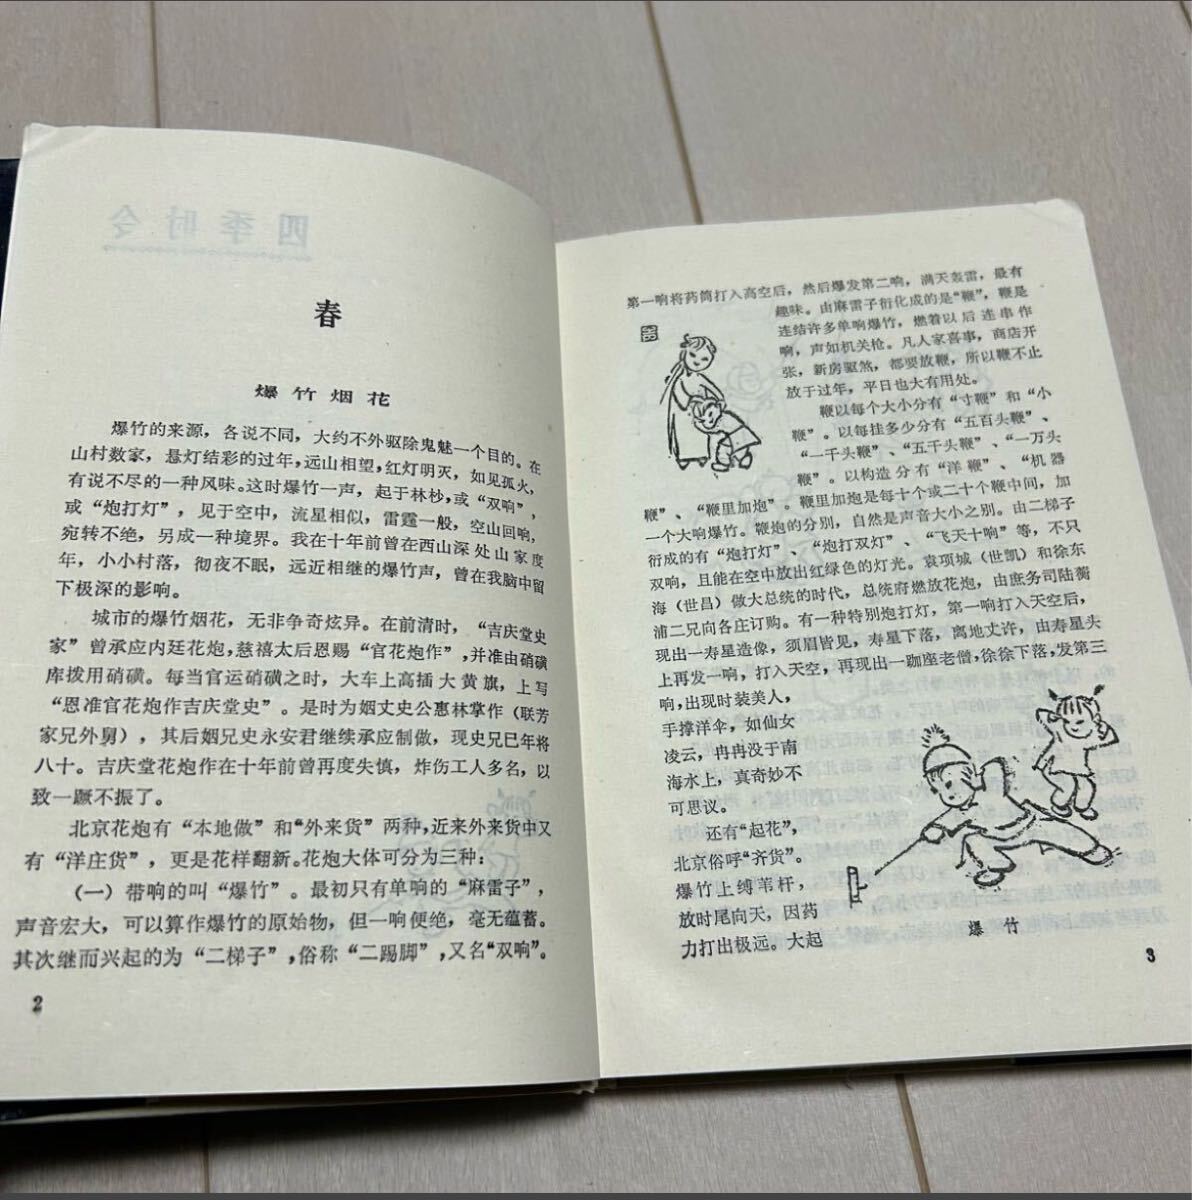 四季时令
春
爆竹烟花
爆竹的来源，各说不同，大约不外驱除鬼魅一个目的。在
山村数家，悬灯结彩的过年，远山相望，红灯明灭，如见孤火，
有说不尽的一种风味。这时爆竹一声，起于林杪，或“双响”，
或“炮打灯”，见于空中，流星相似，雷霆一般，空山回响，
宛转不绝，另成一种境界。我在十年前曾在西山深处山家度
年，小小村落，彻夜不眠，远近相继的爆竹声，曾在我脑中留
下极深的影响。
城市的爆竹烟花，无非争奇炫异。在前清时，“吉庆堂史
家”曾承应内廷花炮，慈禧太后恩赐“官花炮作”，并准由硝磺
库拨用硝磺。每当官运硝磺之时，大车上高插大黄旗，上写
“恩准官花炮作吉庆堂史”。是时为姻丈史公惠林掌作（联芳
家兄外舅），其后姻兄史永安君继续承应制做，现史兄巳年将
八十。吉庆堂花炮作在十年前曾再度失慎，炸伤工人多名，以
致一蹶不振了。
北京花炮有“本地做”和“外来货”两种，近来外来货中又
有“洋庄货”，更是花样翻新。花炮大体可分为三种：
（一）带响的叫“爆竹”。最初只有单响的“麻雷子”，
声音宏大，可以算作爆竹的原始物，但一响便绝，毫无蕴蓄。
其次继而兴起的为“二梯子”，俗称“二踢脚”，又名“双响”。
2
第一响将药筒打入高空后，然后爆发第二响，满天轰雷，最有
趣味。由麻雷子衍化成的是“鞭”，鞭是
连结许多单响爆竹，燃着以后连串作
响，声如机关枪。凡人家喜事，商店开
张，新房驱煞，都要放鞭，所以鞭不止
放于过年，平日也大有用处。
鞭以每个大小分有“寸鞭”和“小
鞭”。以每挂多少分有“五百头鞭”、
“一千头鞭”、“五千头鞭”、“一万头
鞭”。以构造分有“洋鞭”、“机器
鞭”、“鞭里加炮”。鞭里加炮是每十个或二十个鞭中间，加
一个大响爆竹。鞭炮的分别，自然是声音大小之别。由二梯子
衍成的有“炮打灯”、“炮打双灯”、“飞天十响”等，不只
双响，且能在空中放出红绿色的灯光。袁项城（世凯）和徐东
海（世昌）做大总统的时代，总统府燃放花炮，由庶务司陆蘅
浦二兄向各庄订购。有一种特别炮打灯，第一响打入天空后，
现出一寿星造像，须眉皆见，寿星下落，离地丈许，由寿星头
上再发一响，打入天空，再现出一跏座老僧，徐徐下落，发第三
响，出现时装美人，
手撑洋伞，如仙女
凌云，冉冉没于南
海水上，真奇妙不
可思议。
还有“起花”，
北京俗呼“齐货”。
爆竹上缚苇杆，
放时尾向天，因药
力打出极远。大起
爆竹
3